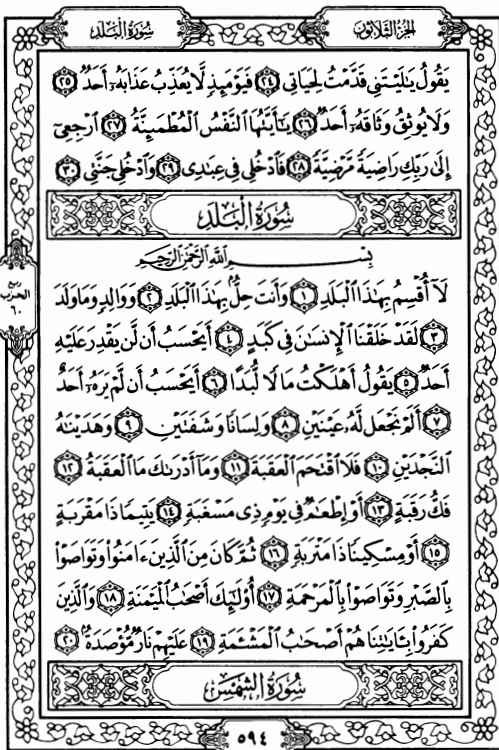 سُورَةُ الْبَلَدِ الجُزْءُ الثَّلَاثُونَ
يَقُولُ يَٰلَيْتَنِى قَدَّمْتُ لِحَيَاتِى ٢٤ فَيَوْمَئِذٍ لَّا يُعَذِّبُ عَذَابَهُۥٓ أَحَدٌ ٢٥
وَلَا يُوثِقُ وَثَاقَهُۥٓ أَحَدٌ ٢٦ يَٰٓأَيَّتُهَا ٱلنَّفْسُ ٱلْمُطْمَئِنَّةُ ٢٧ ٱرْجِعِىٓ
إِلَىٰ رَبِّكِ رَاضِيَةً مَّرْضِيَّةً ٢٨ فَٱدْخُلِى فِى عِبَٰدِى ٢٩ وَٱدْخُلِى جَنَّتِى ٣٠
سُورَةُ الْبَلَدِ
بِسْمِ ٱللَّهِ ٱلرَّحْمَٰنِ ٱلرَّحِيمِ
لَآ أُقْسِمُ بِهَٰذَا ٱلْبَلَدِ ١ وَأَنتَ حِلٌّۢ بِهَٰذَا ٱلْبَلَدِ ٢ وَوَالِدٍ وَمَا وَلَدَ
٣ لَقَدْ خَلَقْنَا ٱلْإِنسَٰنَ فِى كَبَدٍ ٤ أَيَحْسَبُ أَن لَّن يَقْدِرَ عَلَيْهِ
أَحَدٌ ٥ يَقُولُ أَهْلَكْتُ مَالًا لُّبَدًا ٦ أَيَحْسَبُ أَن لَّمْ يَرَهُۥٓ أَحَدٌ
٧ أَلَمْ نَجْعَل لَّهُۥ عَيْنَيْنِ ٨ وَلِسَانًا وَشَفَتَيْنِ ٩ وَهَدَيْنَٰهُ
ٱلنَّجْدَيْنِ ١٠ فَلَا ٱقْتَحَمَ ٱلْعَقَبَةَ ١١ وَمَآ أَدْرَىٰكَ مَا ٱلْعَقَبَةُ ١٢
فَكُّ رَقَبَةٍ ١٣ أَوْ إِطْعَٰمٌ فِى يَوْمٍ ذِى مَسْغَبَةٍ ١٤ يَتِيمًا ذَا مَقْرَبَةٍ
١٥ أَوْ مِسْكِينًا ذَا مَتْرَبَةٍ ١٦ ثُمَّ كَانَ مِنَ ٱلَّذِينَ ءَامَنُوا۟ وَتَوَاصَوْا۟
بِٱلصَّبْرِ وَتَوَاصَوْا۟ بِٱلْمَرْحَمَةِ ١٧ أُو۟لَٰٓئِكَ أَصْحَٰبُ ٱلْمَيْمَنَةِ ١٨ وَٱلَّذِينَ
كَفَرُوا۟ بِـَٔايَٰتِنَا هُمْ أَصْحَٰبُ ٱلْمَشْـَٔمَةِ ١٩ عَلَيْهِمْ نَارٌ مُّؤْصَدَةٌۢ ٢٠
سُورَةُ الشَّمْسِ
ربع
الحزب
٦٠
٥٩٤